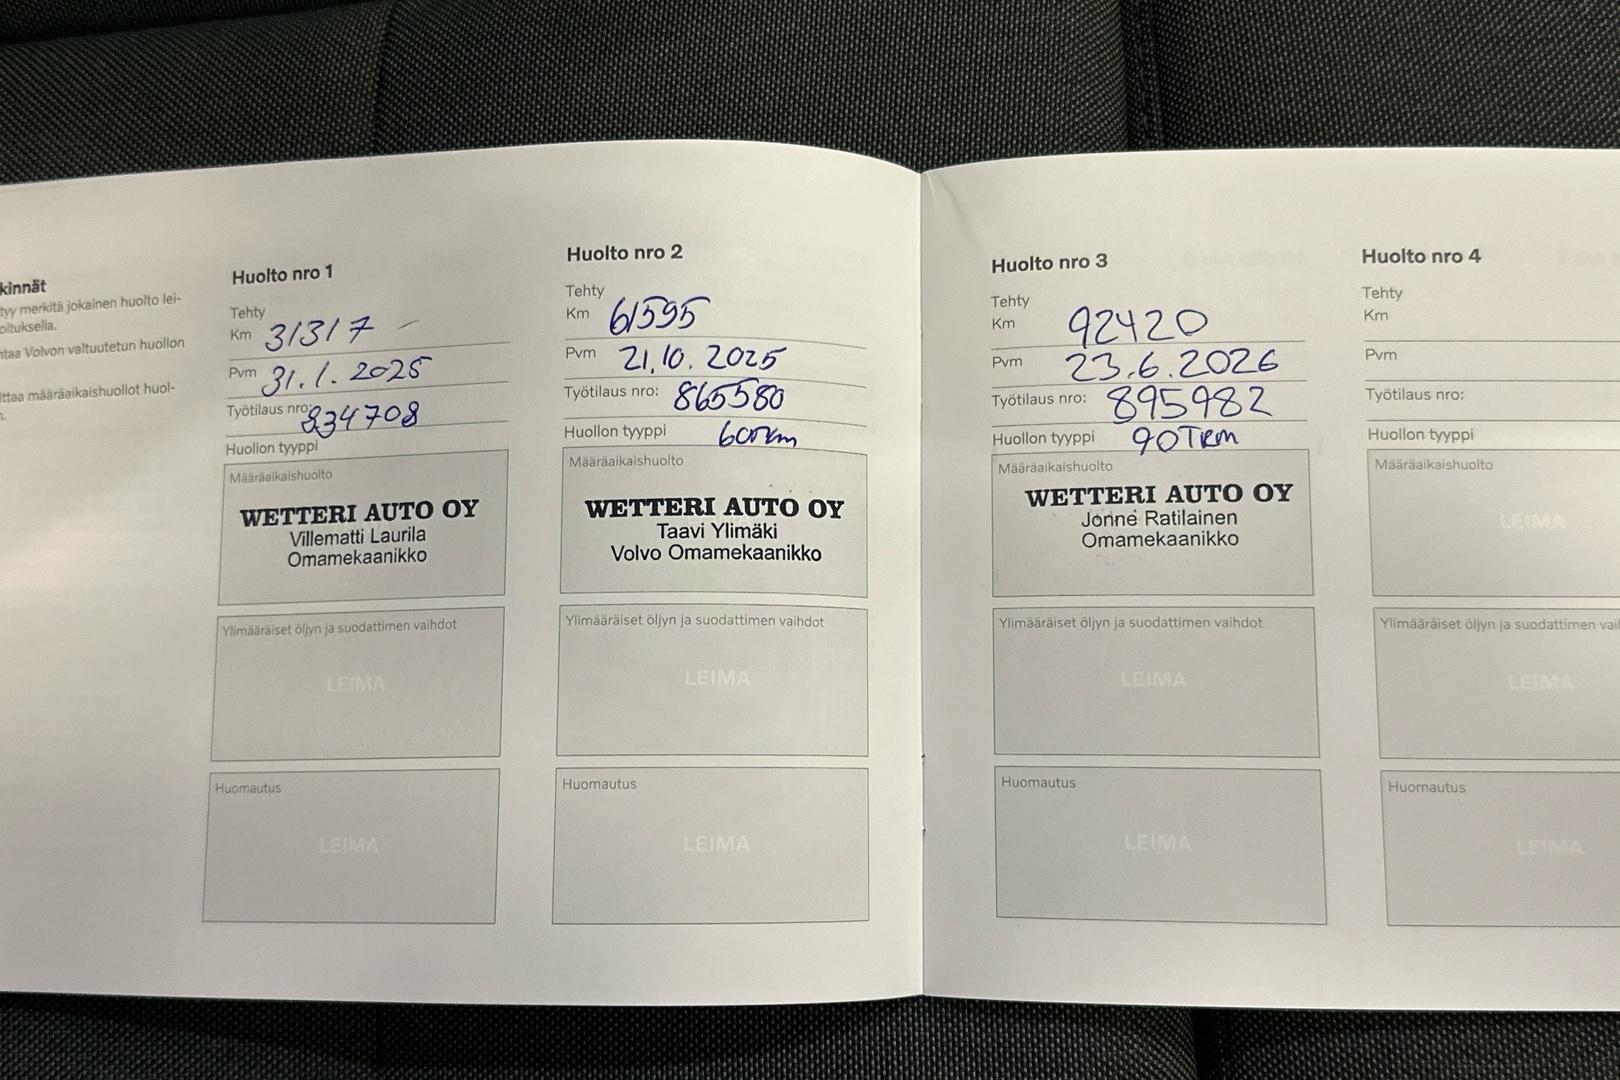 kinnät
tyy merkitä jokainen huolto lei-
oituksella.
ntaa Volvon valtuutetun huollon
ittaa määräaikaishuollot huol-
Huolto nro 1
Tehty
Km 31317
Pvm 31.1.2025
Työtilaus nro: 834708
Huollon tyyppi
Määräaikaishuolto
WETTERI AUTO OY
Villematti Laurila
Omamekaanikko
Ylimääräiset öljyn ja suodattimen vaihdot
LEIMA
Huomautus
LEIMA
Huolto nro 2
Tehty
Km 61595
Pvm 21.10.2025
Työtilaus nro: 865580
Huollon tyyppi
Määräaikaishuolto
WETTERI AUTO OY
Taavi Ylimäki
Volvo Omamekaanikko
Ylimääräiset öljyn ja suodattimen vaihdot
LEIMA
Huomautus
LEIMA
Huolto nro 3
Tehty
Km 92420
Pvm 23.6.2026
Työtilaus nro: 895982
Huollon tyyppi 90TKM
Määräaikaishuolto
WETTERI AUTO OY
Jonne Ratilainen
Omamekaanikko
Ylimääräiset öljyn ja suodattimen vaihdot
LEIMA
Huomautus
LEIMA
Huolto nro 4
Tehty
Km
Pvm
Työtilaus nro:
Huollon tyyppi
Määräaikaishuolto
LEIMA
Ylimääräiset öljyn ja suodattimen vai
LEIMA
Huomautus
LEIMA